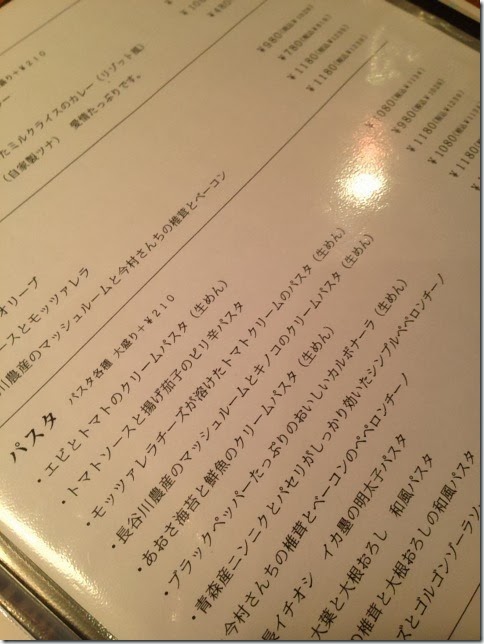 盛り+¥210
たミルクライスのカレー(リゾット風)
(自家製ツナ) 愛情たっぷりです。
¥980
¥780
¥1180
¥1180
オリーブ
ースとモッツァレラ
川農産のマッシュルームと今村さんちの椎茸とベーコン
¥1080
¥980
¥1180
¥1080
¥1180
パスタ パスタ各種 大盛り+¥210
・エビとトマトのクリームパスタ(生めん)
・トマトソースと揚げ茄子のピリ辛パスタ
・モッツァレラチーズが溶けたトマトクリームのパスタ(生めん)
・長谷川農産のマッシュルームとキノコのクリームパスタ(生めん)
・あおさ海苔と鮮魚のクリームパスタ(生めん)
・ブラックペッパーたっぷりのおいしいカルボナーラ(生めん)
・青森産ニンニクとパセリがしっかり効いたシンプルペペロンチーノ
今村さんちの椎茸とベーコンのペペロンチーノ
長イチオシ イカ墨の明太子パスタ
大葉と大根おろし 和風パスタ
の椎茸と大根おろしの和風パスタ
ズとゴルゴンゾーラソ